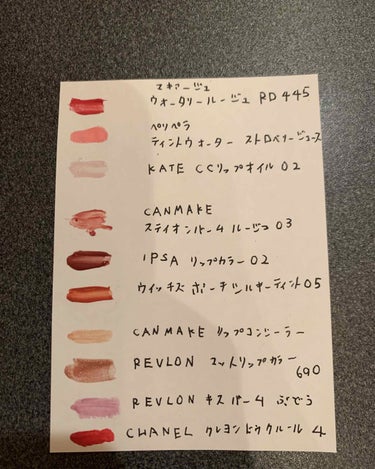 マキアージュ
ウォータリールージュ RD 445
ペリペラ
ティントウォーター ストロベリージュース
KATE CCリップオイル 02
CANMAKE
ステイオンバームルージュ 03
IPSA リップカラー 02
ウィッチズポーチ ジェルティント 05
CANMAKE リップコンシーラー
REVLON マットリップカラー
690
REVLON キスバーム ぶどう
CHANEL クレヨンドゥクルール 4